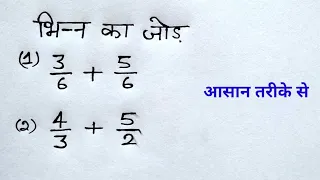 भिन्न का जोड़
(1) 3/6 + 5/6
आसान तरीके से
(2) 4/3 + 5/2